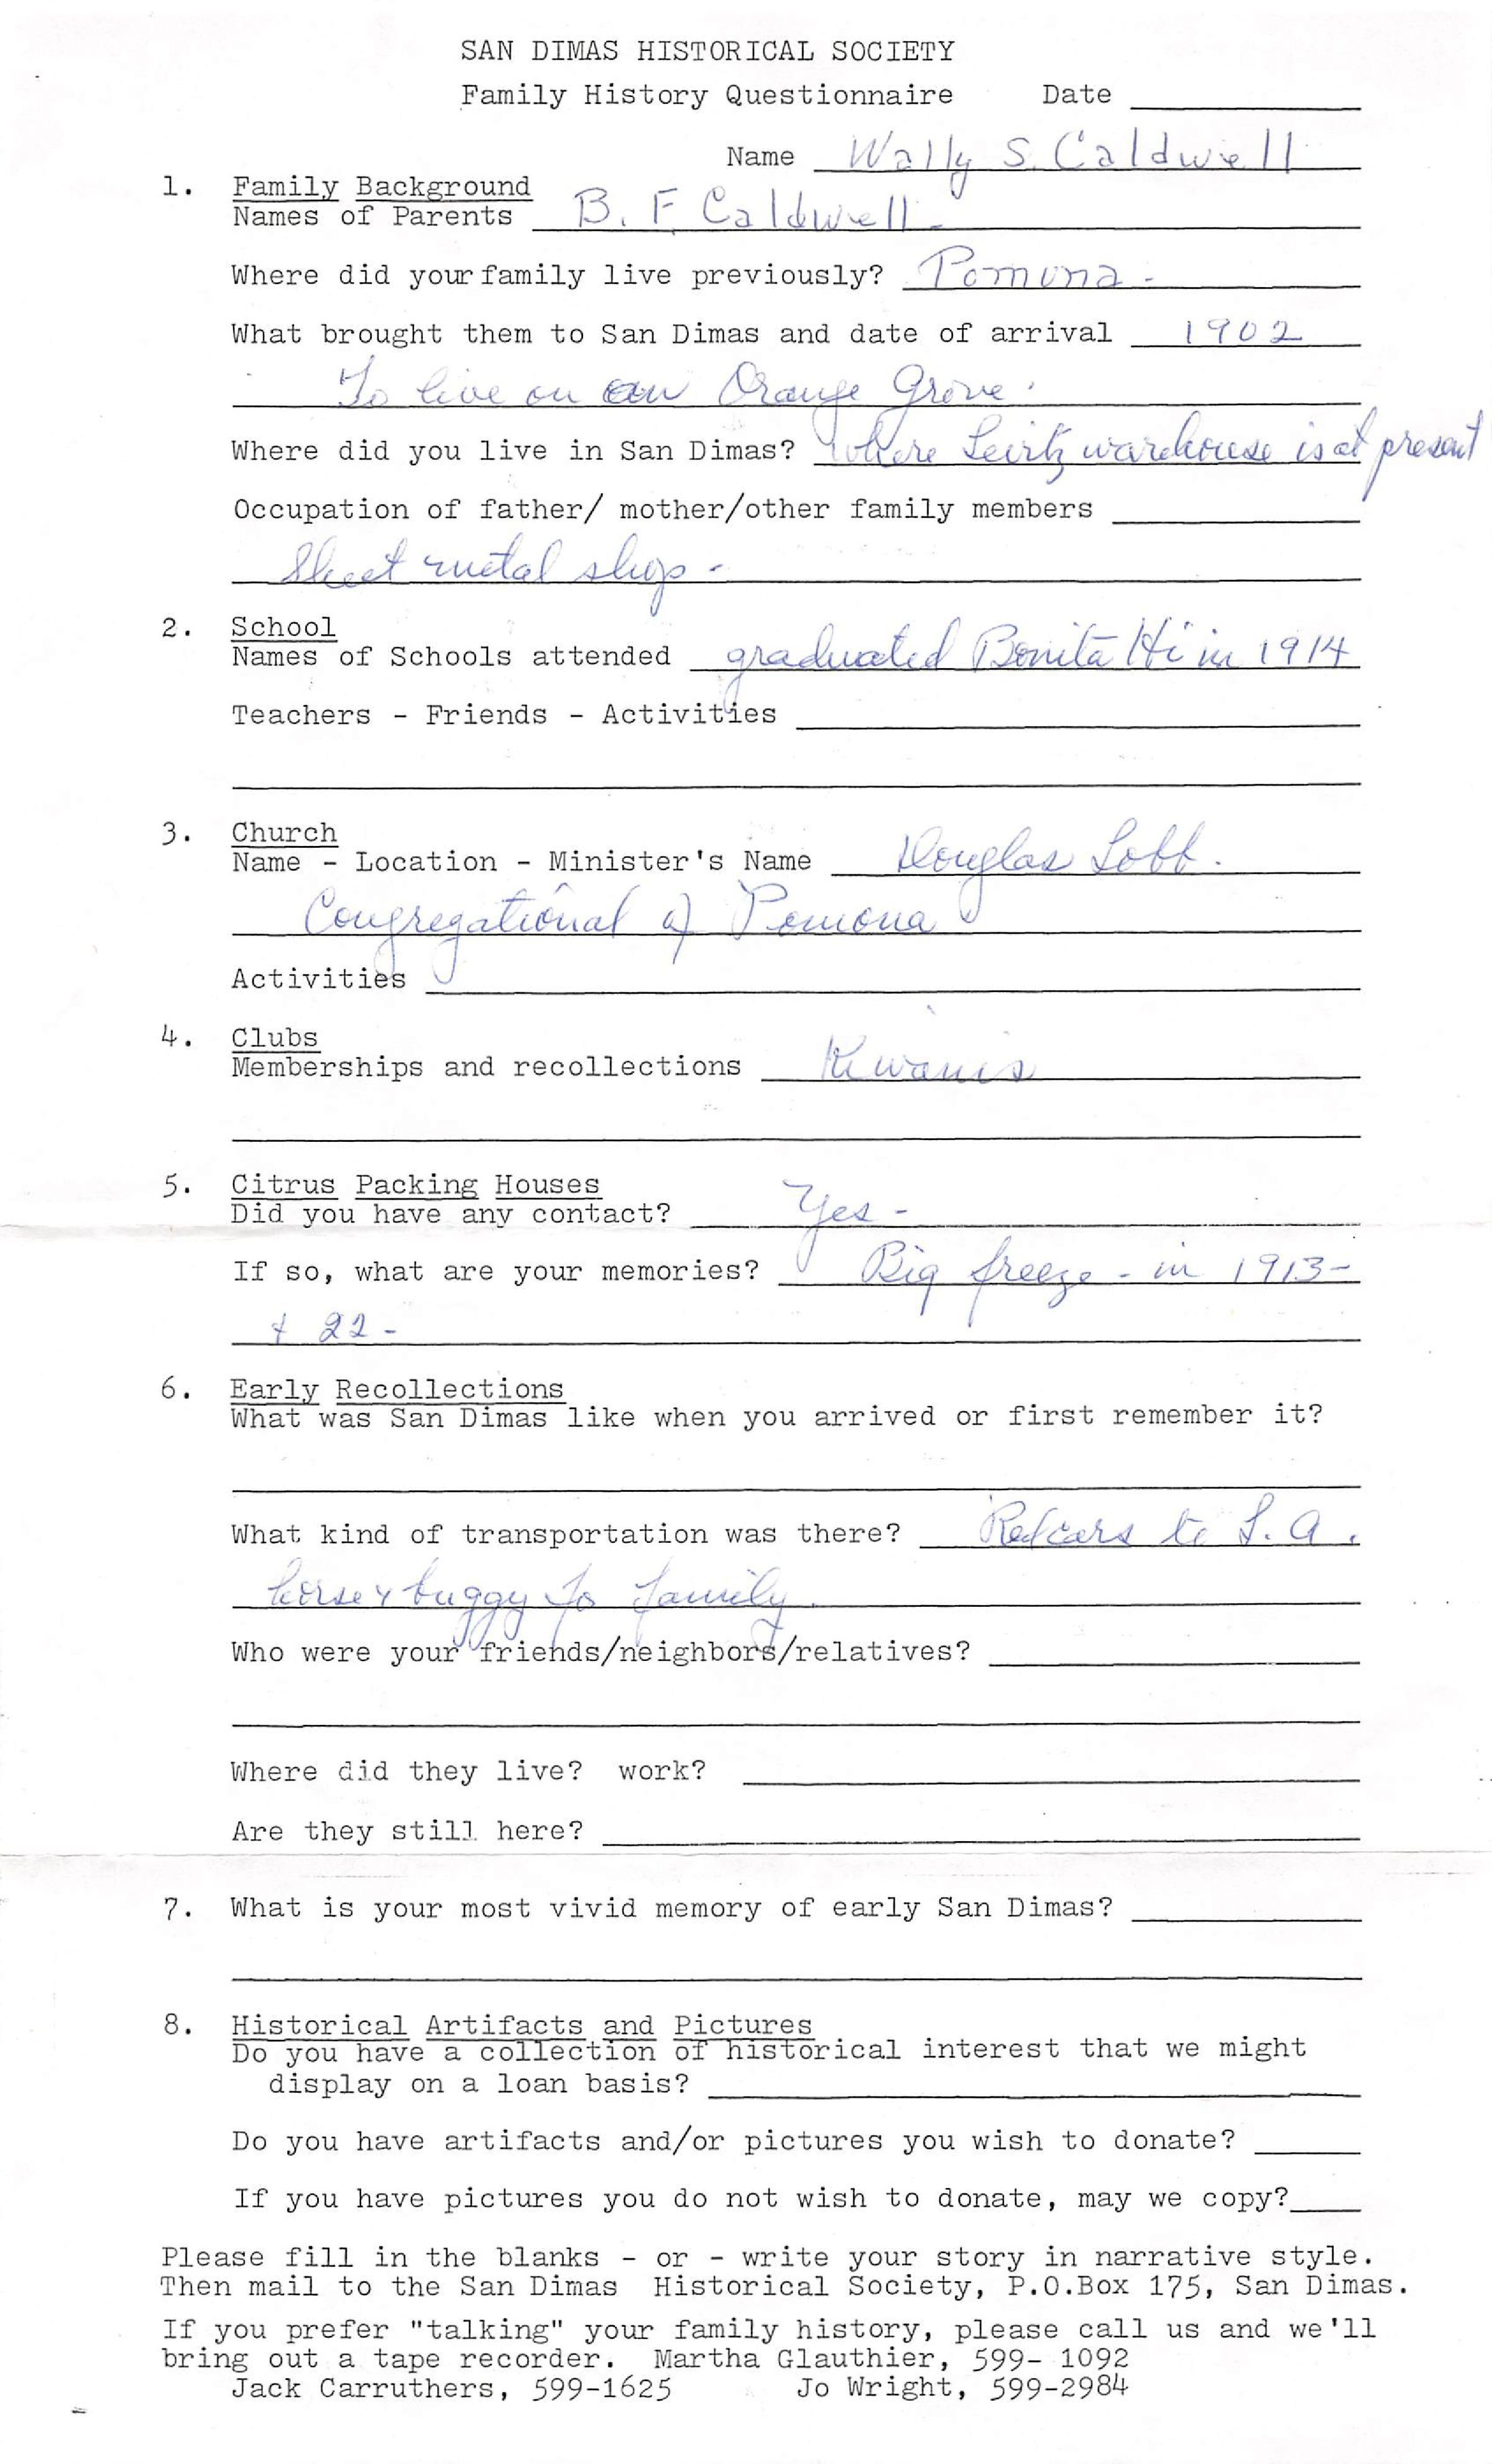 SAN DIMAS HISTORICAL SOCIETY
Family History Questionnaire Date
Name Wally S. Caldwell
1. Family Background
Names of Parents B. F. Caldwell -
Where did your family live previously? Pomona -
What brought them to San Dimas and date of arrival 1902
To live on Orange Grove.
Where did you live in San Dimas? Where warehouse is at present
Occupation of father/ mother/other family members
Sheet metal shop -
2. School
Names of Schools attended graduated Bonita Hi in 1914
Teachers - Friends - Activities
3. Church
Name - Location - Minister's Name Douglas Lobb.
Congregational of Pomona
Activities
4. Clubs
Memberships and recollections Kiwanis
5. Citrus Packing Houses
Did you have any contact? Yes -
If so, what are your memories? Big freeze - in 1913 -
+ 22 -
6. Early Recollections
What was San Dimas like when you arrived or first remember it?
What kind of transportation was there? Redcars to L.A.
horse & buggy for family.
Who were your friends/neighbors/relatives?
Where did they live? work?
Are they still here?
7. What is your most vivid memory of early San Dimas?
8. Historical Artifacts and Pictures
Do you have a collection of historical interest that we might
display on a loan basis?
Do you have artifacts and/or pictures you wish to donate?
If you have pictures you do not wish to donate, may we copy?
Please fill in the blanks - or - write your story in narrative style.
Then mail to the San Dimas Historical Society, P.O.Box 175, San Dimas.
If you prefer "talking" your family history, please call us and we'll
bring out a tape recorder. Martha Glauthier, 599- 1092
Jack Carruthers, 599-1625 Jo Wright, 599-2984